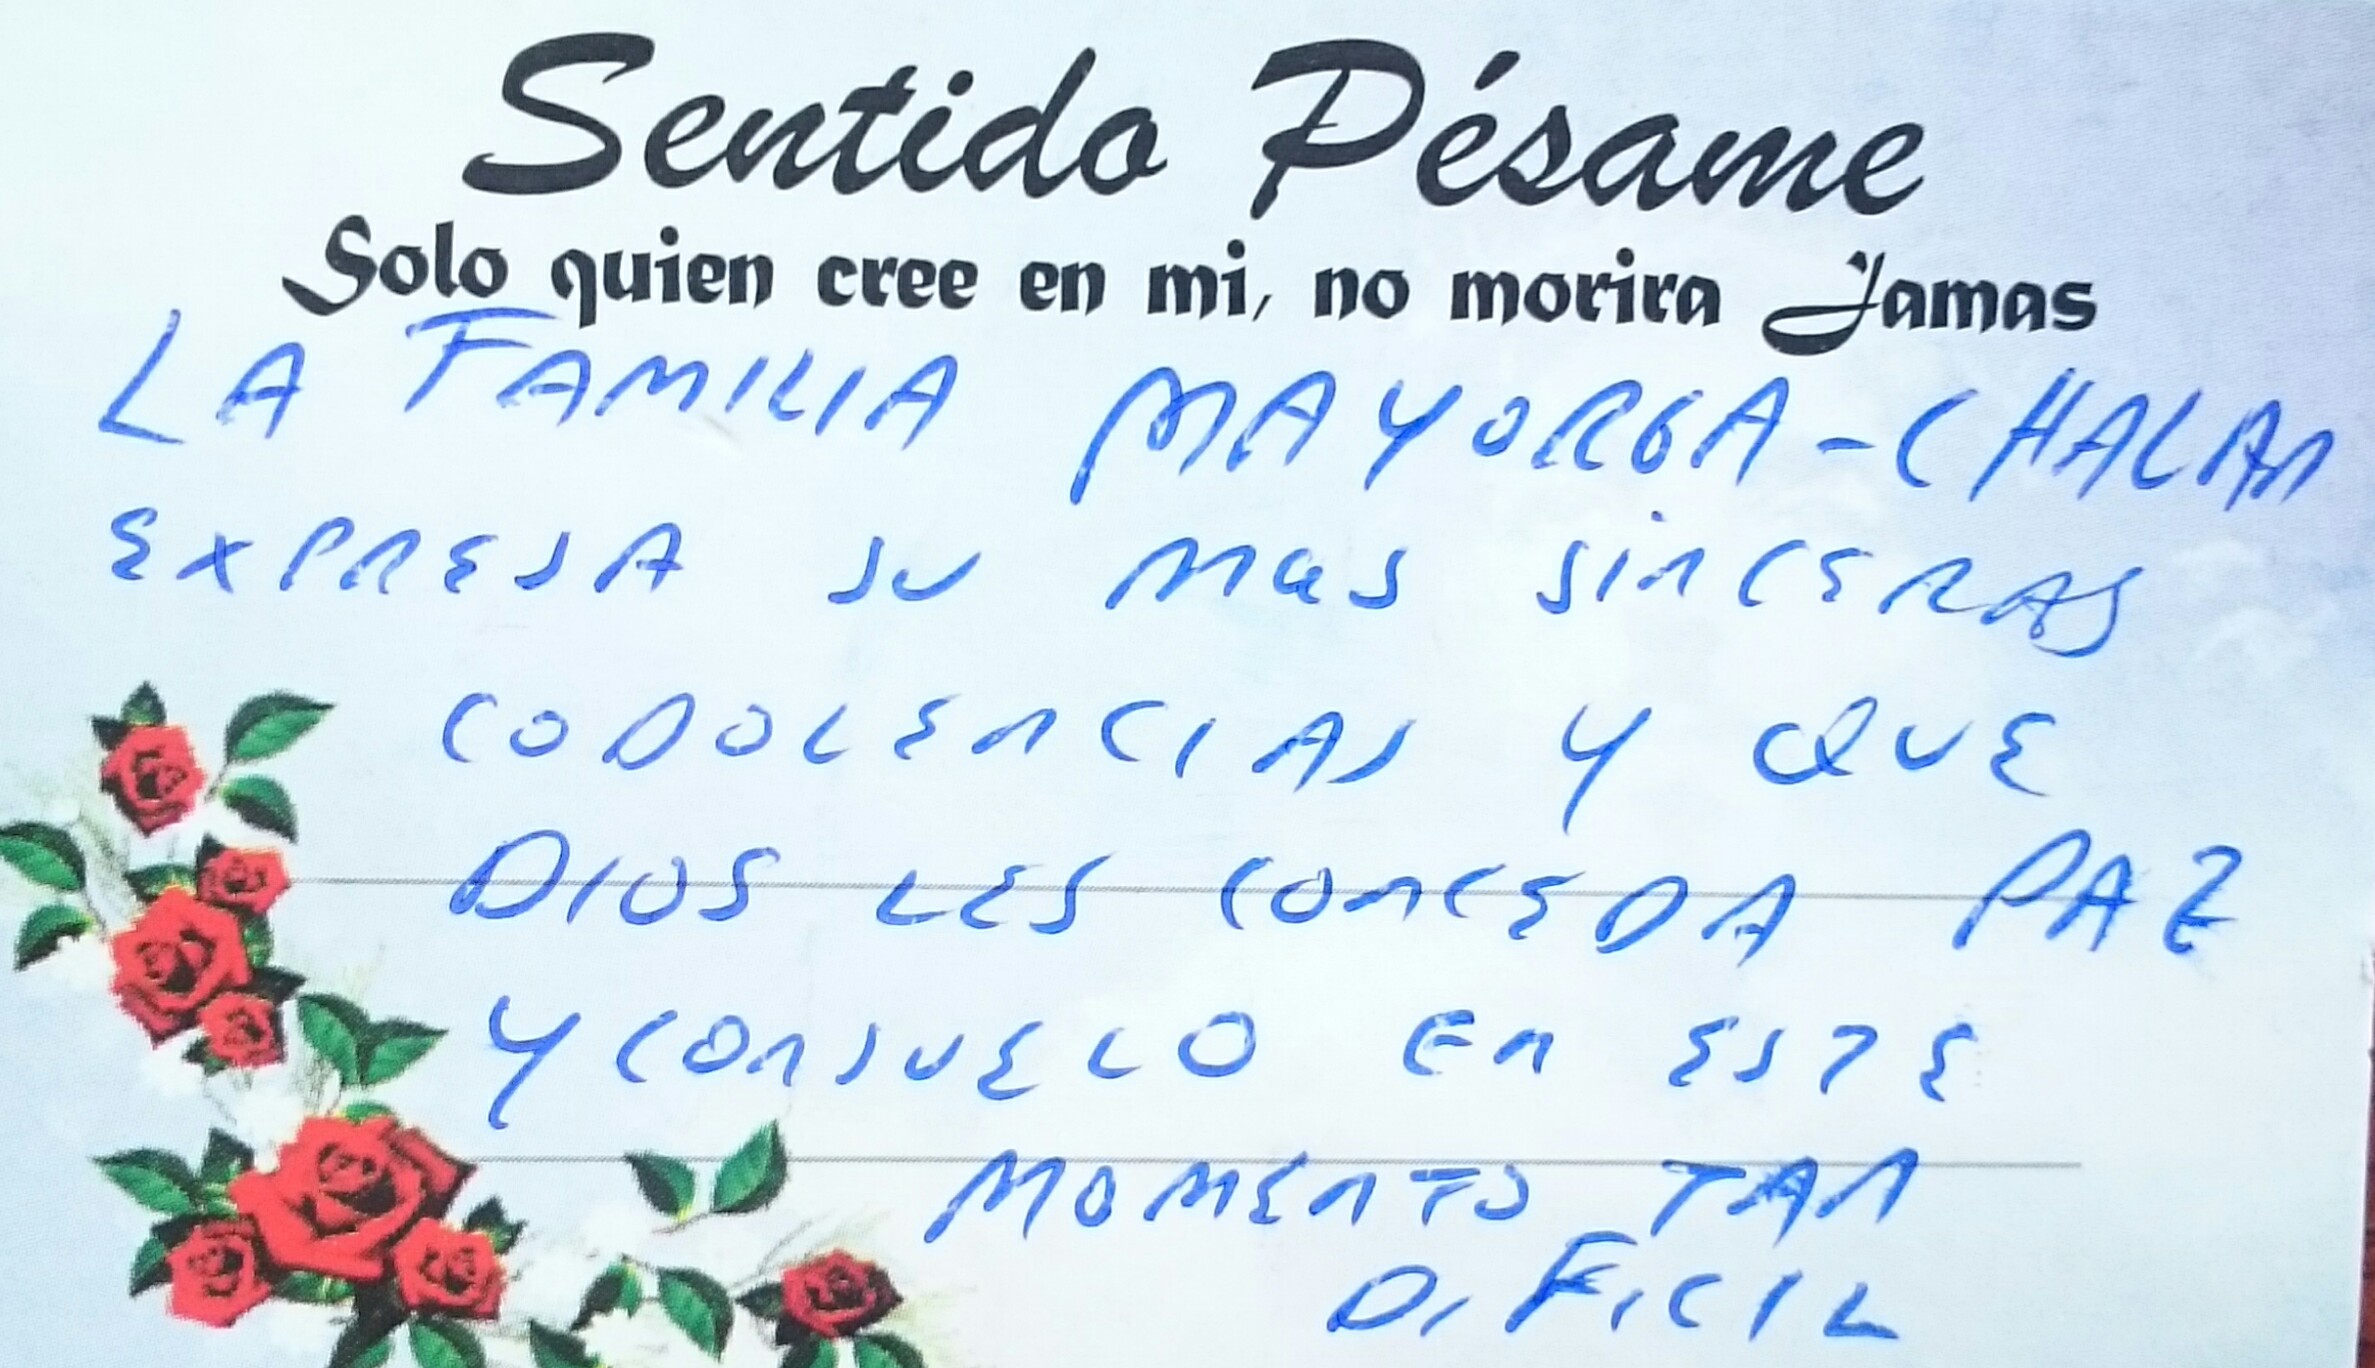 Sentido Pésame
Solo quien cree en mi, no morira Jamas
LA FAMILIA MAYORGA-CHALAN
EXPRESA SU MaS SiNCERAS
CODOLENCIAS Y QUE
DIOS LES CONCEDA PAZ
Y CONSUELO EN ESTE
MOMENTO TAN
DiFiCIL